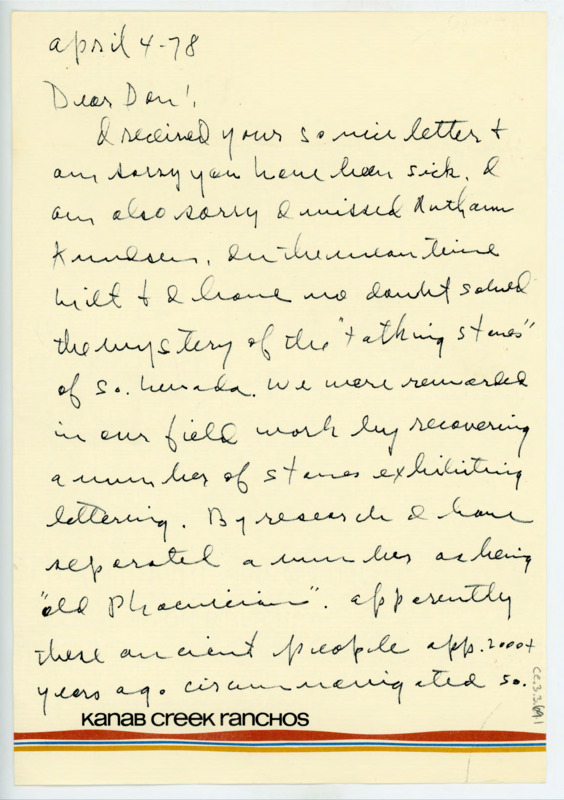 april 4-78
Dear Don!,
I received your so nice letter &
am sorry you have been sick. I
am also sorry I missed Ruthann
Knudsen. In the mean time
Milt & I have no doubt solved
the mystery of the "talking stones"
of So. Nevada. We were rewarded
in our field work by recovering
a number of stones exhibiting
lettering. By research I have
separated a number as being
"old Phoenician". apparently
these ancient people app. 2000+
years ago circumnavigated So.
KANAB CREEK RANCHOS